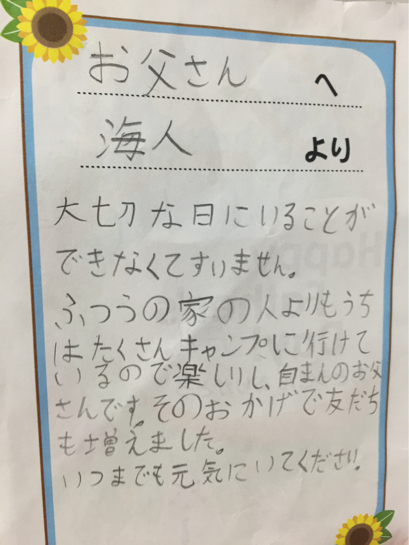 お父さん へ
海人 より
大切な日にいることが
できなくてすいません。
ふつうの家の人よりもうち
はたくさんキャンプに行けて
いるので楽しいし、自まんのお父
さんです。そのおかげで友だち
も増えました。
いつまでも元気にいてください。